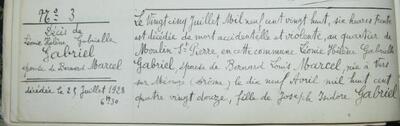 N° 3
Décès de
Léonie Hélène Gabrielle
Gabriel
épouse de Bernard Marcel
décédée le 25 Juillet 1928
6h30
Le Vingt cinq Juillet Mil neuf cent vingt huit, six heures trente
est décédée de mort accidentelle et violente, au quartier de
Moulin St Pierre, en cette commune Léonie Hélène Gabrielle
Gabriel, épouse de Bernard Louis Marcel, née à Vers
sur Méouge (Drôme) le dix neuf Avril mil huit cent
quatre vingt douze, fille de Joseph Isidore Gabriel